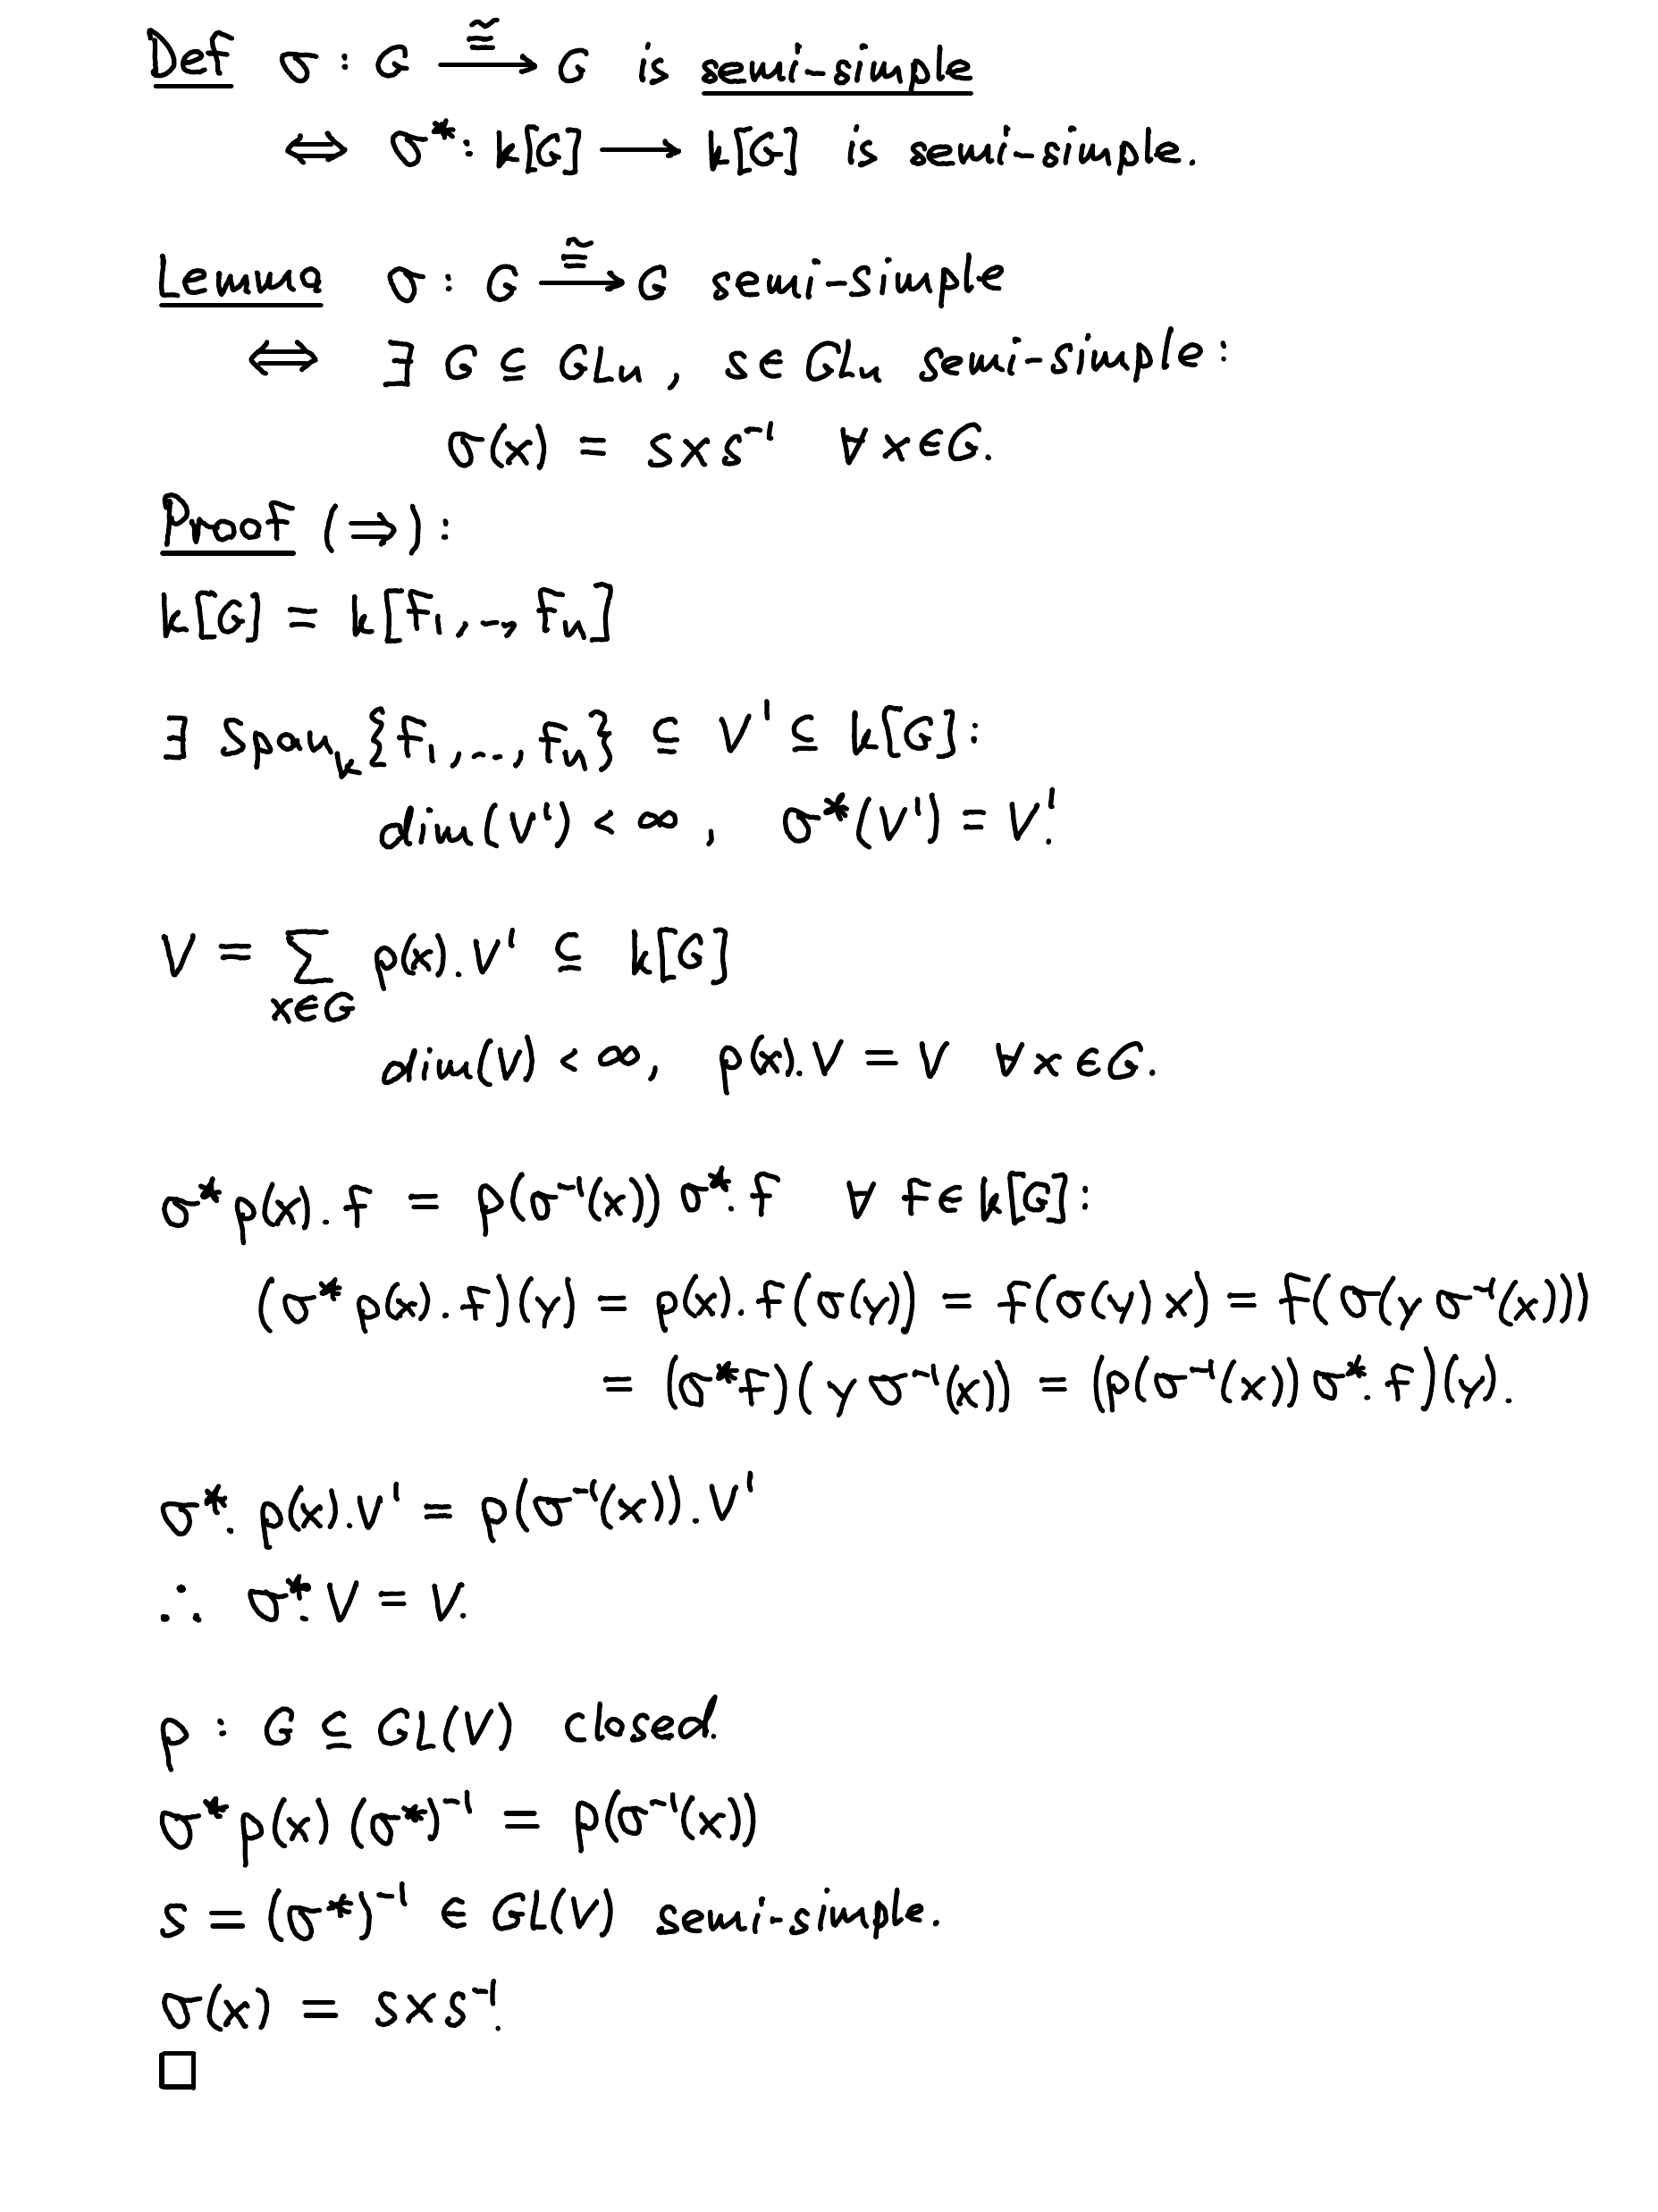 Def σ : G ≅⟶ G is semi-simple
⟺ σ* : k[G] ⟶ k[G] is semi-simple.
Lemma σ : G ≅⟶ G semi-simple
⟺ ∃ G ⊆ GLn , s ∈ GLn semi-simple :
σ(x) = s x s⁻¹ ∀ x ∈ G.
Proof (⇒) :
k[G] = k[f₁, .., fₙ]
∃ Spanₖ{f₁, .., fₙ} ⊆ V' ⊆ k[G] :
dim(V') < ∞ , σ*(V') = V'.
V = ∑_{x∈G} ρ(x).V' ⊆ k[G]
dim(V) < ∞, ρ(x).V = V ∀ x ∈ G.
σ* ρ(x). f = ρ(σ⁻¹(x)) σ*. f ∀ f ∈ k[G] :
(σ* ρ(x). f)(y) = ρ(x). f(σ(y)) = f(σ(y) x) = f(σ(y σ⁻¹(x)))
= (σ* f)(y σ⁻¹(x)) = (ρ(σ⁻¹(x)) σ*. f)(y).
σ*. ρ(x).V' = ρ(σ⁻¹(x)).V'
∴ σ*. V = V.
ρ : G ⊆ GL(V) closed.
σ* ρ(x) (σ*)⁻¹ = ρ(σ⁻¹(x))
s = (σ*)⁻¹ ∈ GL(V) semi-simple.
σ(x) = s x s⁻¹.
□